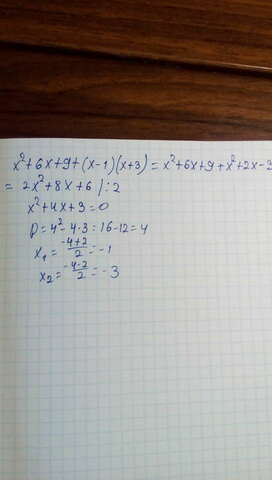 x²+6x+9+(x-1)(x+3)=x²+6x+9+x²+2x-3
= 2x²+8x+6 /:2
x²+4x+3=0
D=4²-4·3=16-12=4
x₁=(-4+2)/2=-1
x₂=(-4-2)/2=-3